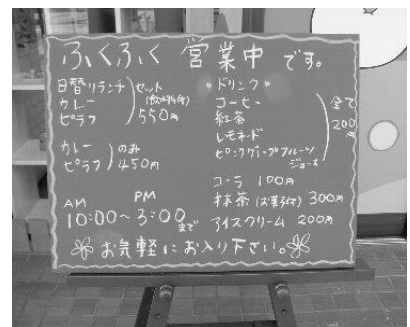 ふくふく 営業中 です。
日替りランチ
カレー
ピラフ
セット
(飲み物付)
550円
カレー
ピラフ
のみ
450円
AM PM
10:00~3:00まで
・ドリンク・
コーヒー
紅茶
レモネード
ピンクグレープフルーツ
ジュース
全て
200円
コーラ 100円
抹茶(お菓子付) 300円
アイスクリーム 200円
お気軽にお入り下さい。